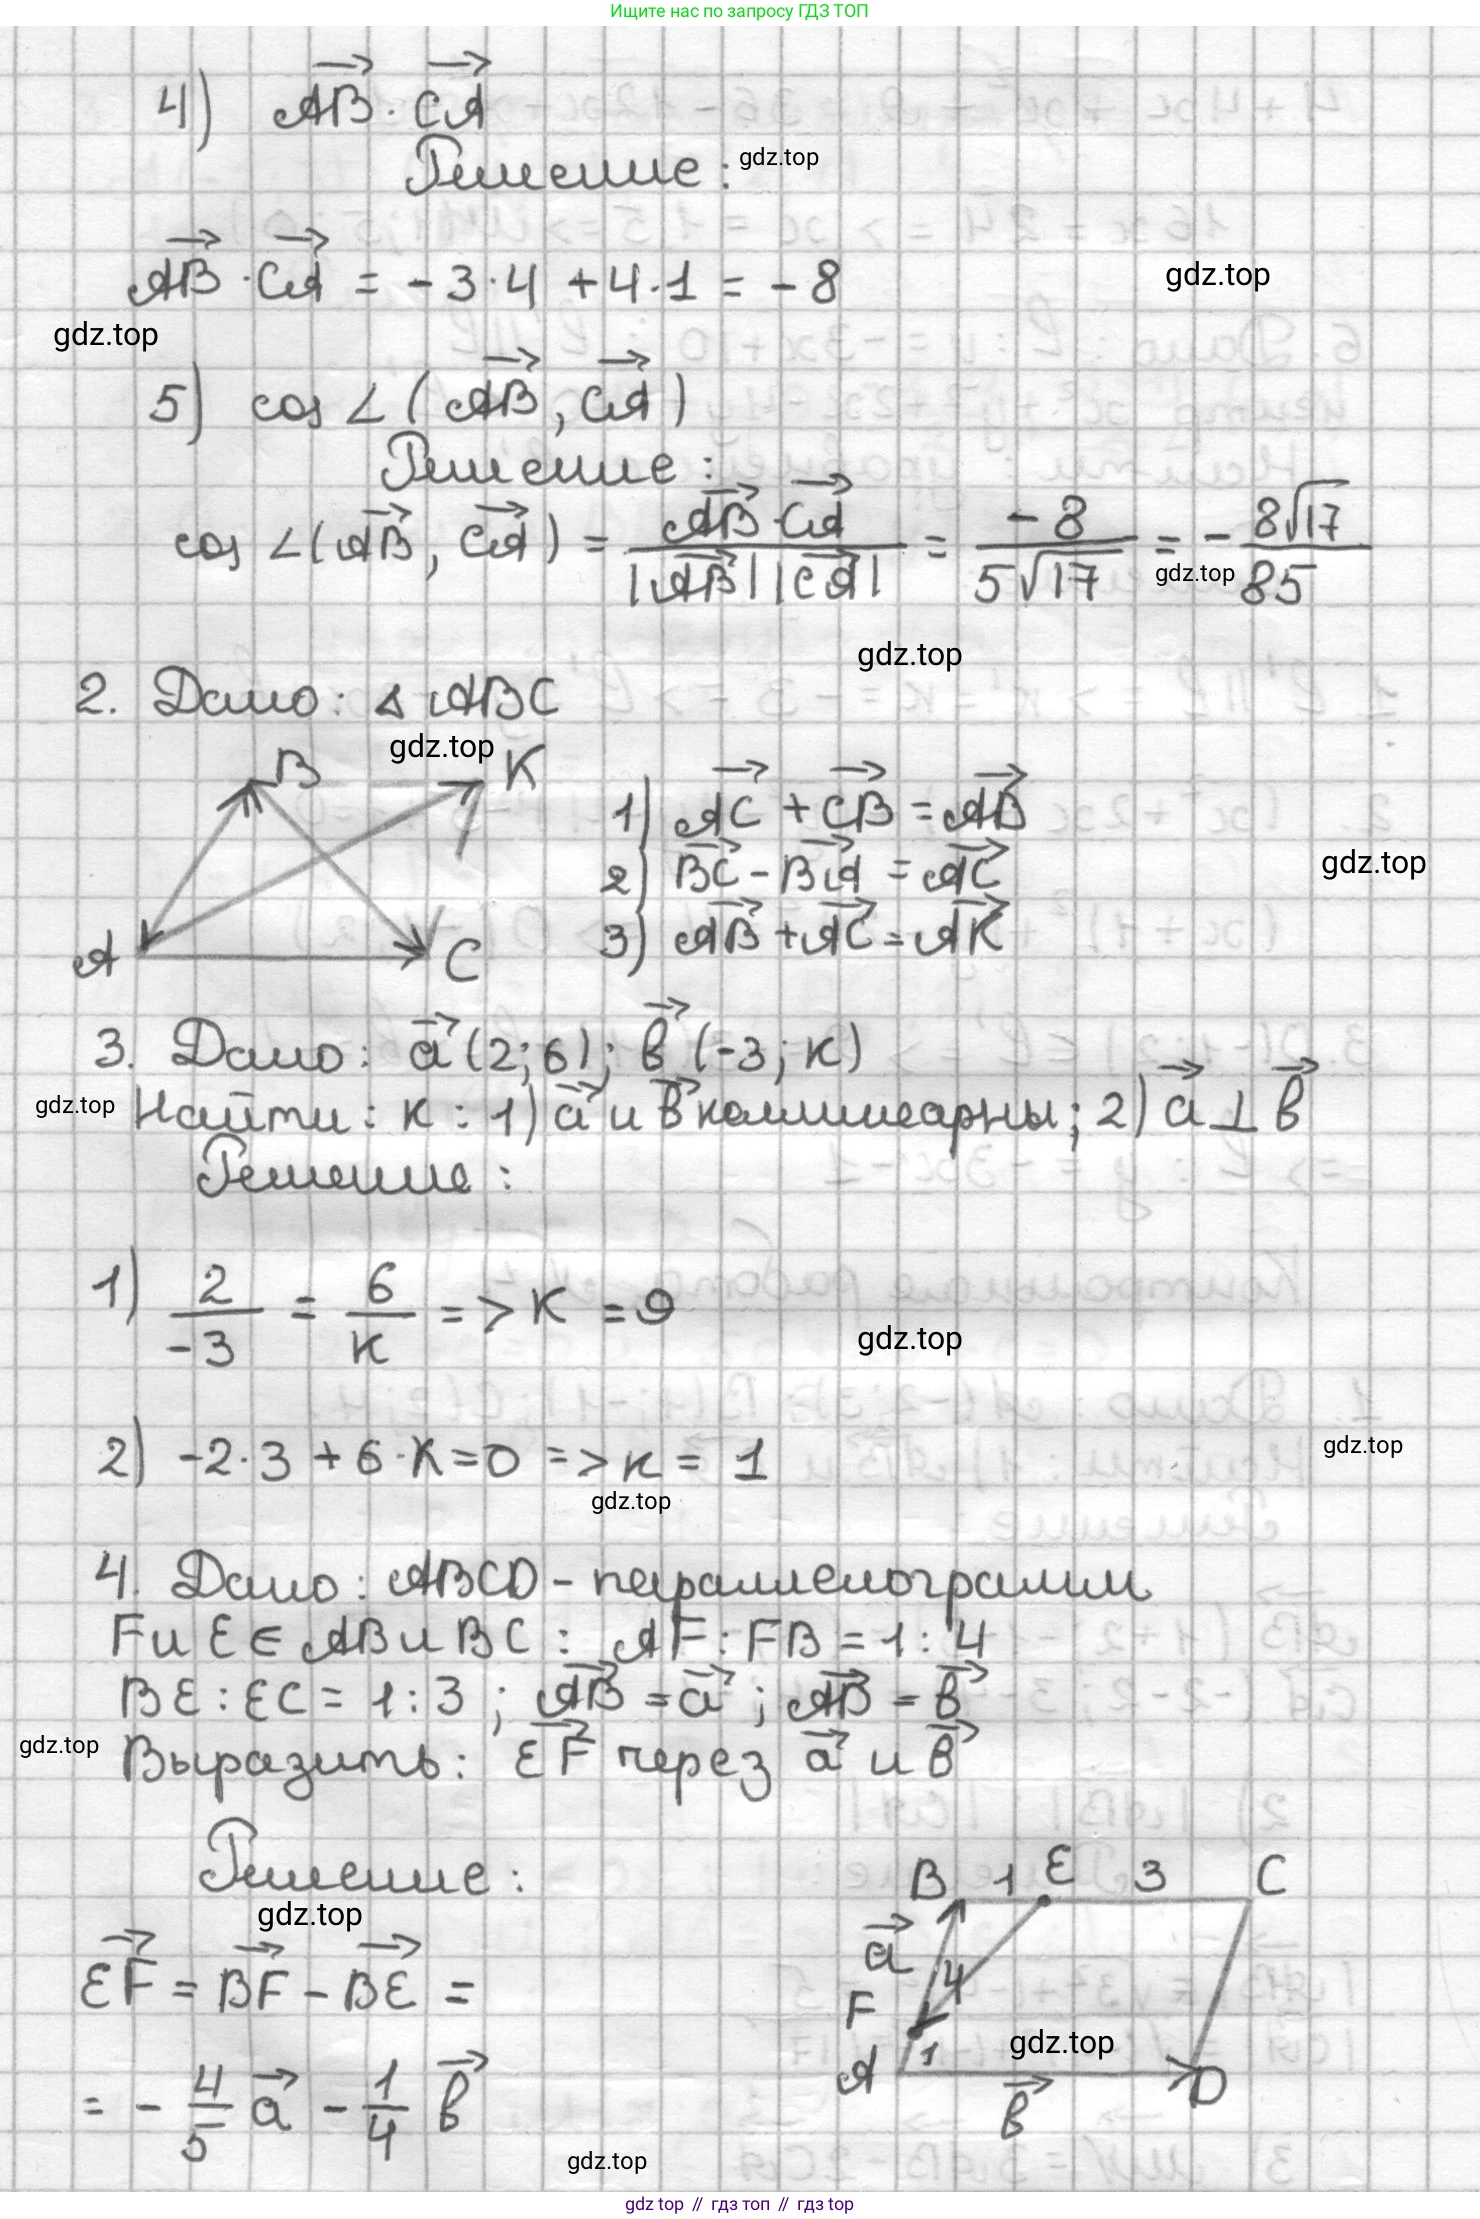 Ищите нас по запросу ГДЗ ТОП
4) AB · CA
Решение: gdz.top
AB · CA = -3·4 + 4·1 = -8
gdz.top
gdz.top
5) cos ∠(AB, CA)
Решение:
cos ∠(AB, CA) = AB·CA / |AB||CA| = -8 / 5√17 = - 8√17 / 85
gdz.top
gdz.top
2. Дано: △ABC
gdz.top
B K
A C
1) AC + CB = AB
2) BC - BA = AC
3) AB + AC = AK
gdz.top
3. Дано: a (2; 6); b (-3; к)
gdz.top
Найти: к: 1) a и b коллинеарны; 2) a ⊥ b
Решение:
1) 2 / -3 = 6 / к => к = 9
gdz.top
2) -2·3 + 6·к = 0 => к = 1
gdz.top
gdz.top
4. Дано: ABCD - параллелограмм
F и E ∈ AB и BC: AF : FB = 1 : 4
BE : EC = 1 : 3; AB = a; AB = b
gdz.top
Выразить: EF через a и b
Решение:
gdz.top
B 1 E 3 C
a
4
F
A 1 D
b
gdz.top
EF = BF - BE =
= - 4/5 a - 1/4 b
gdz.top
gdz top // гдз топ // гдз top